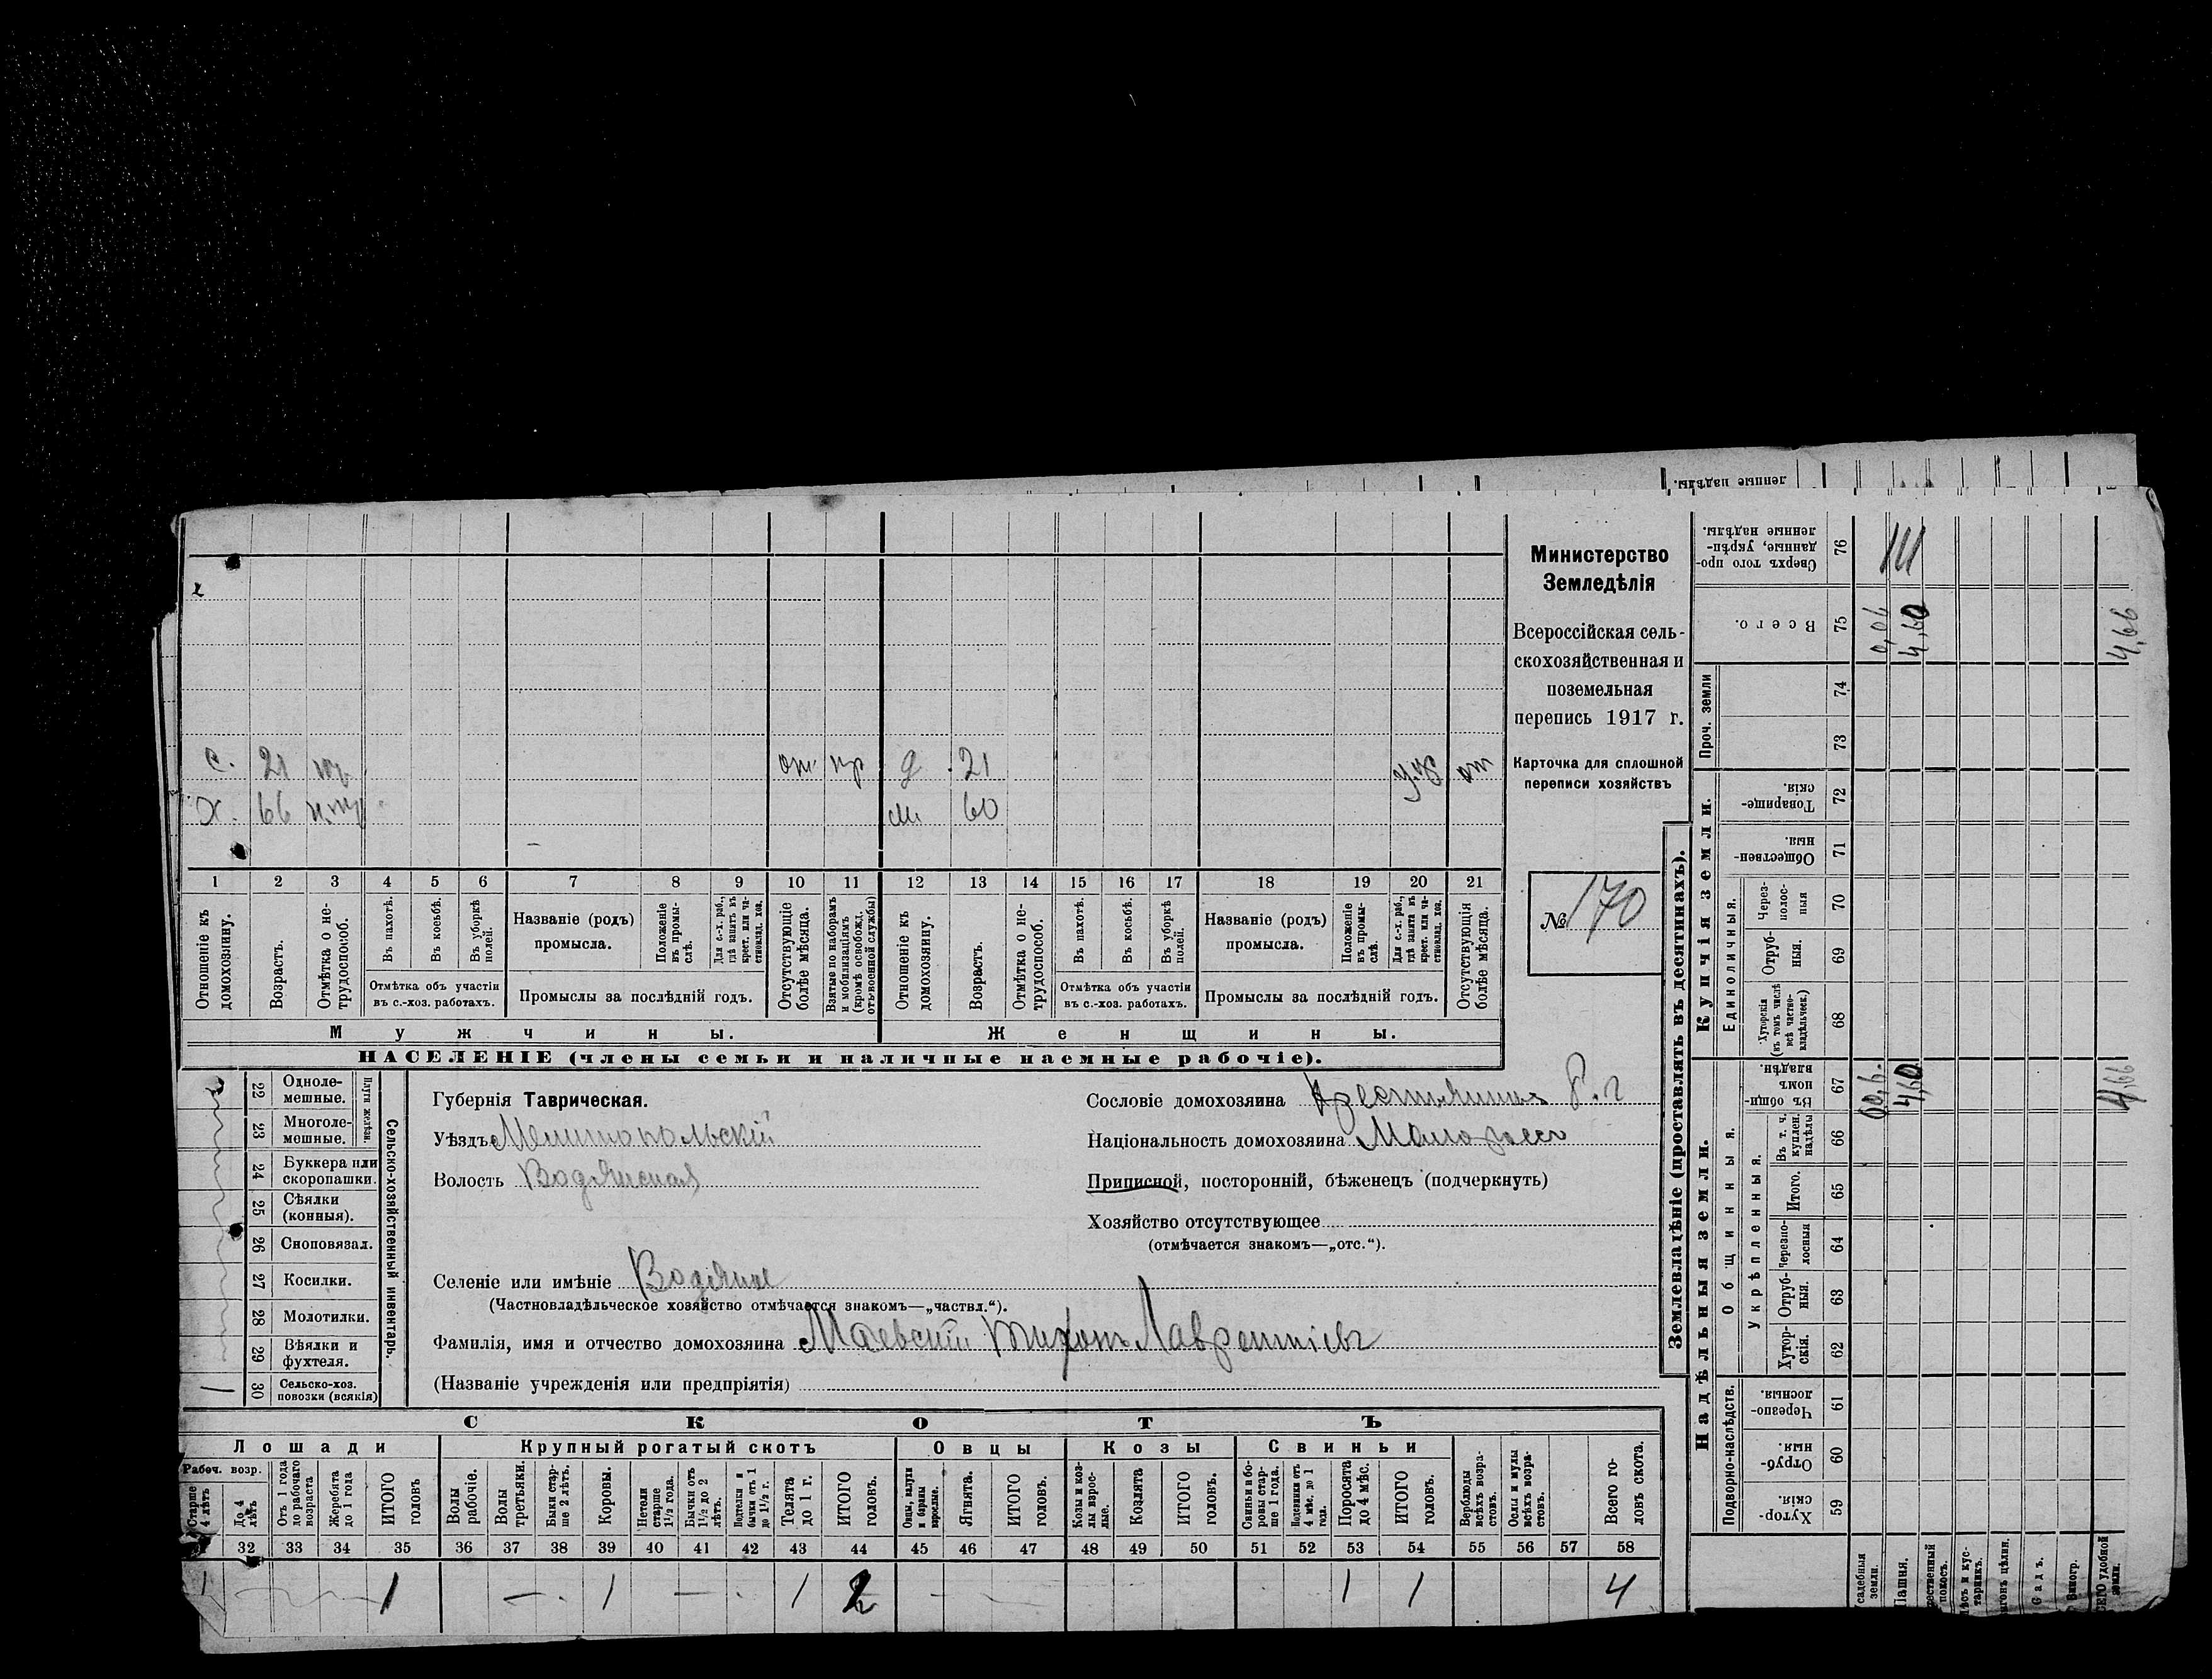 Министерство
Земледѣлія
Всероссійская сель-
скохозяйственная и
поземельная
перепись 1917 г.
Карточка для сплошной
переписи хозяйствъ
№ 170
с. 21 от пр д 21 от
х. 66 м 60
1 2 3 4 5 6 7 8 9 10 11 12 13 14 15 16 17 18 19 20 21
Отношеніе къ домохозяину.
Возрастъ.
Отмѣтка о не-трудоспособ.
Въ пахотѣ.
Въ косьбѣ.
Въ уборкѣ полей.
Отмѣтка объ участіи
въ с.-хоз. работахъ.
Названіе (родъ)
промысла.
Положеніе въ промы-слѣ.
Для с.-х. раб., гдѣ занятъ въ крест. или ча-стновлад. хоз.
Промыслы за послѣдній годъ.
Отсутствующіе болѣе мѣсяца.
Взятые по наборамъ и мобилизаціямъ (кромѣ освобожд. отъ военной службы)
Отношеніе къ домохозяину.
Возрастъ.
Отмѣтка о не-трудоспособ.
Въ пахотѣ.
Въ косьбѣ.
Въ уборкѣ полей.
Отмѣтка объ участіи
въ с.-хоз. работахъ.
Названіе (родъ)
промысла.
Положеніе въ промы-слѣ.
Для с.-х. раб., гдѣ занята въ крест. или ча-стновлад. хоз.
Промыслы за послѣдній годъ.
Отсутствующія болѣе мѣсяца.
Мужчины. Женщины.
НАСЕЛЕНІЕ (члены семьи и наличные наемные рабочіе).
22 Одноле-мешные.
23 Многоле-мешные.
Плуги желѣзн.
24 Буккера или скоропашки.
25 Сѣялки (конныя).
26 Сноповязал.
27 Косилки.
28 Молотилки.
29 Вѣялки и фухтеля.
1 30 Сельско-хоз. повозки (всякія)
Сельско-хозяйственный инвентарь.
Губернія Таврическая.
Уѣздъ Мелитопольскій
Волость Водянская
Селеніе или имѣніе Водяное
(Частновладѣльческое хозяйство отмѣчается знакомъ—„частвл.“).
Фамилія, имя и отчество домохозяина Маевскій Тихонъ Лаврентьевъ
(Названіе учрежденія или предпріятія)
Сословіе домохозяина Крестьянинъ
Національность домохозяина Малоросъ
Приписной, посторонній, бѣженецъ (подчеркнуть)
Хозяйство отсутствующее
(отмѣчается знакомъ—„отс.“).
СКОТЪ
Лошади Крупный рогатый скотъ Овцы Козы Свиньи
Рабоч. возр.
Старше 4 лѣтъ
До 4 лѣтъ
Отъ 1 года до рабочаго возраста
Жеребята до 1 года
ИТОГО головъ
Волы рабочіе.
Волы третьяки.
Быки стар-ше 2 лѣтъ.
Коровы.
Нетели старше 1½ года.
Бычки отъ 1½ до 2 лѣтъ.
Подтелки и бычки отъ 1 до 1½ г.
Телята до 1 г.
ИТОГО головъ.
Овцы, валухи и бараны взрослые.
Ягнята.
ИТОГО головъ.
Козы и коз-лы взрос-лые.
Козлята
ИТОГО головъ.
Свиньи и бо-ровы стар-ше 1 года.
Подсвинки отъ 4 мѣс. до 1 года.
Поросята до 4 мѣс.
ИТОГО головъ.
Верблюды всѣхъ возра-стовъ.
Ослы и мулы всѣхъ возра-стовъ.
Всего го-ловъ скота.
32 33 34 35 36 37 38 39 40 41 42 43 44 45 46 47 48 49 50 51 52 53 54 55 56 57 58
1 1 1 1 2 1 1 4
Землевладѣніе (проставлять въ десятинахъ).
Надѣльныя земли. Купчія земли. Проч. земли
Подворно-наслѣдств.
Общинныя.
Укрѣпленныя.
Единоличныя.
Хутор-скія. 59
Отруб-ныя. 60
Черезпо-лосныя. 61
Хутор-скія. 62
Отруб-ныя. 63
Черезпо-лосныя 64
Итого. 65
Въ т. ч. куплен. надѣлы 66
Въ общин-номъ владѣн. 67
Хуторскія (въ томъ числѣ всѣ частно-владѣльческ.) 68
Отруб-ныя. 69
Через-полос-ныя 70
Обществен-ныя. 71
Товарище-скія. 72
73
74
Всего. 75
Сверхъ того про-данные, укрѣп-ленные надѣлы. 76
ленные надѣлы.
4,60 4,66
0,06 4,60 4,66
садебныя земли.
Пашня.
покосъ.
Садъ.
Виногр.
удобной земли.